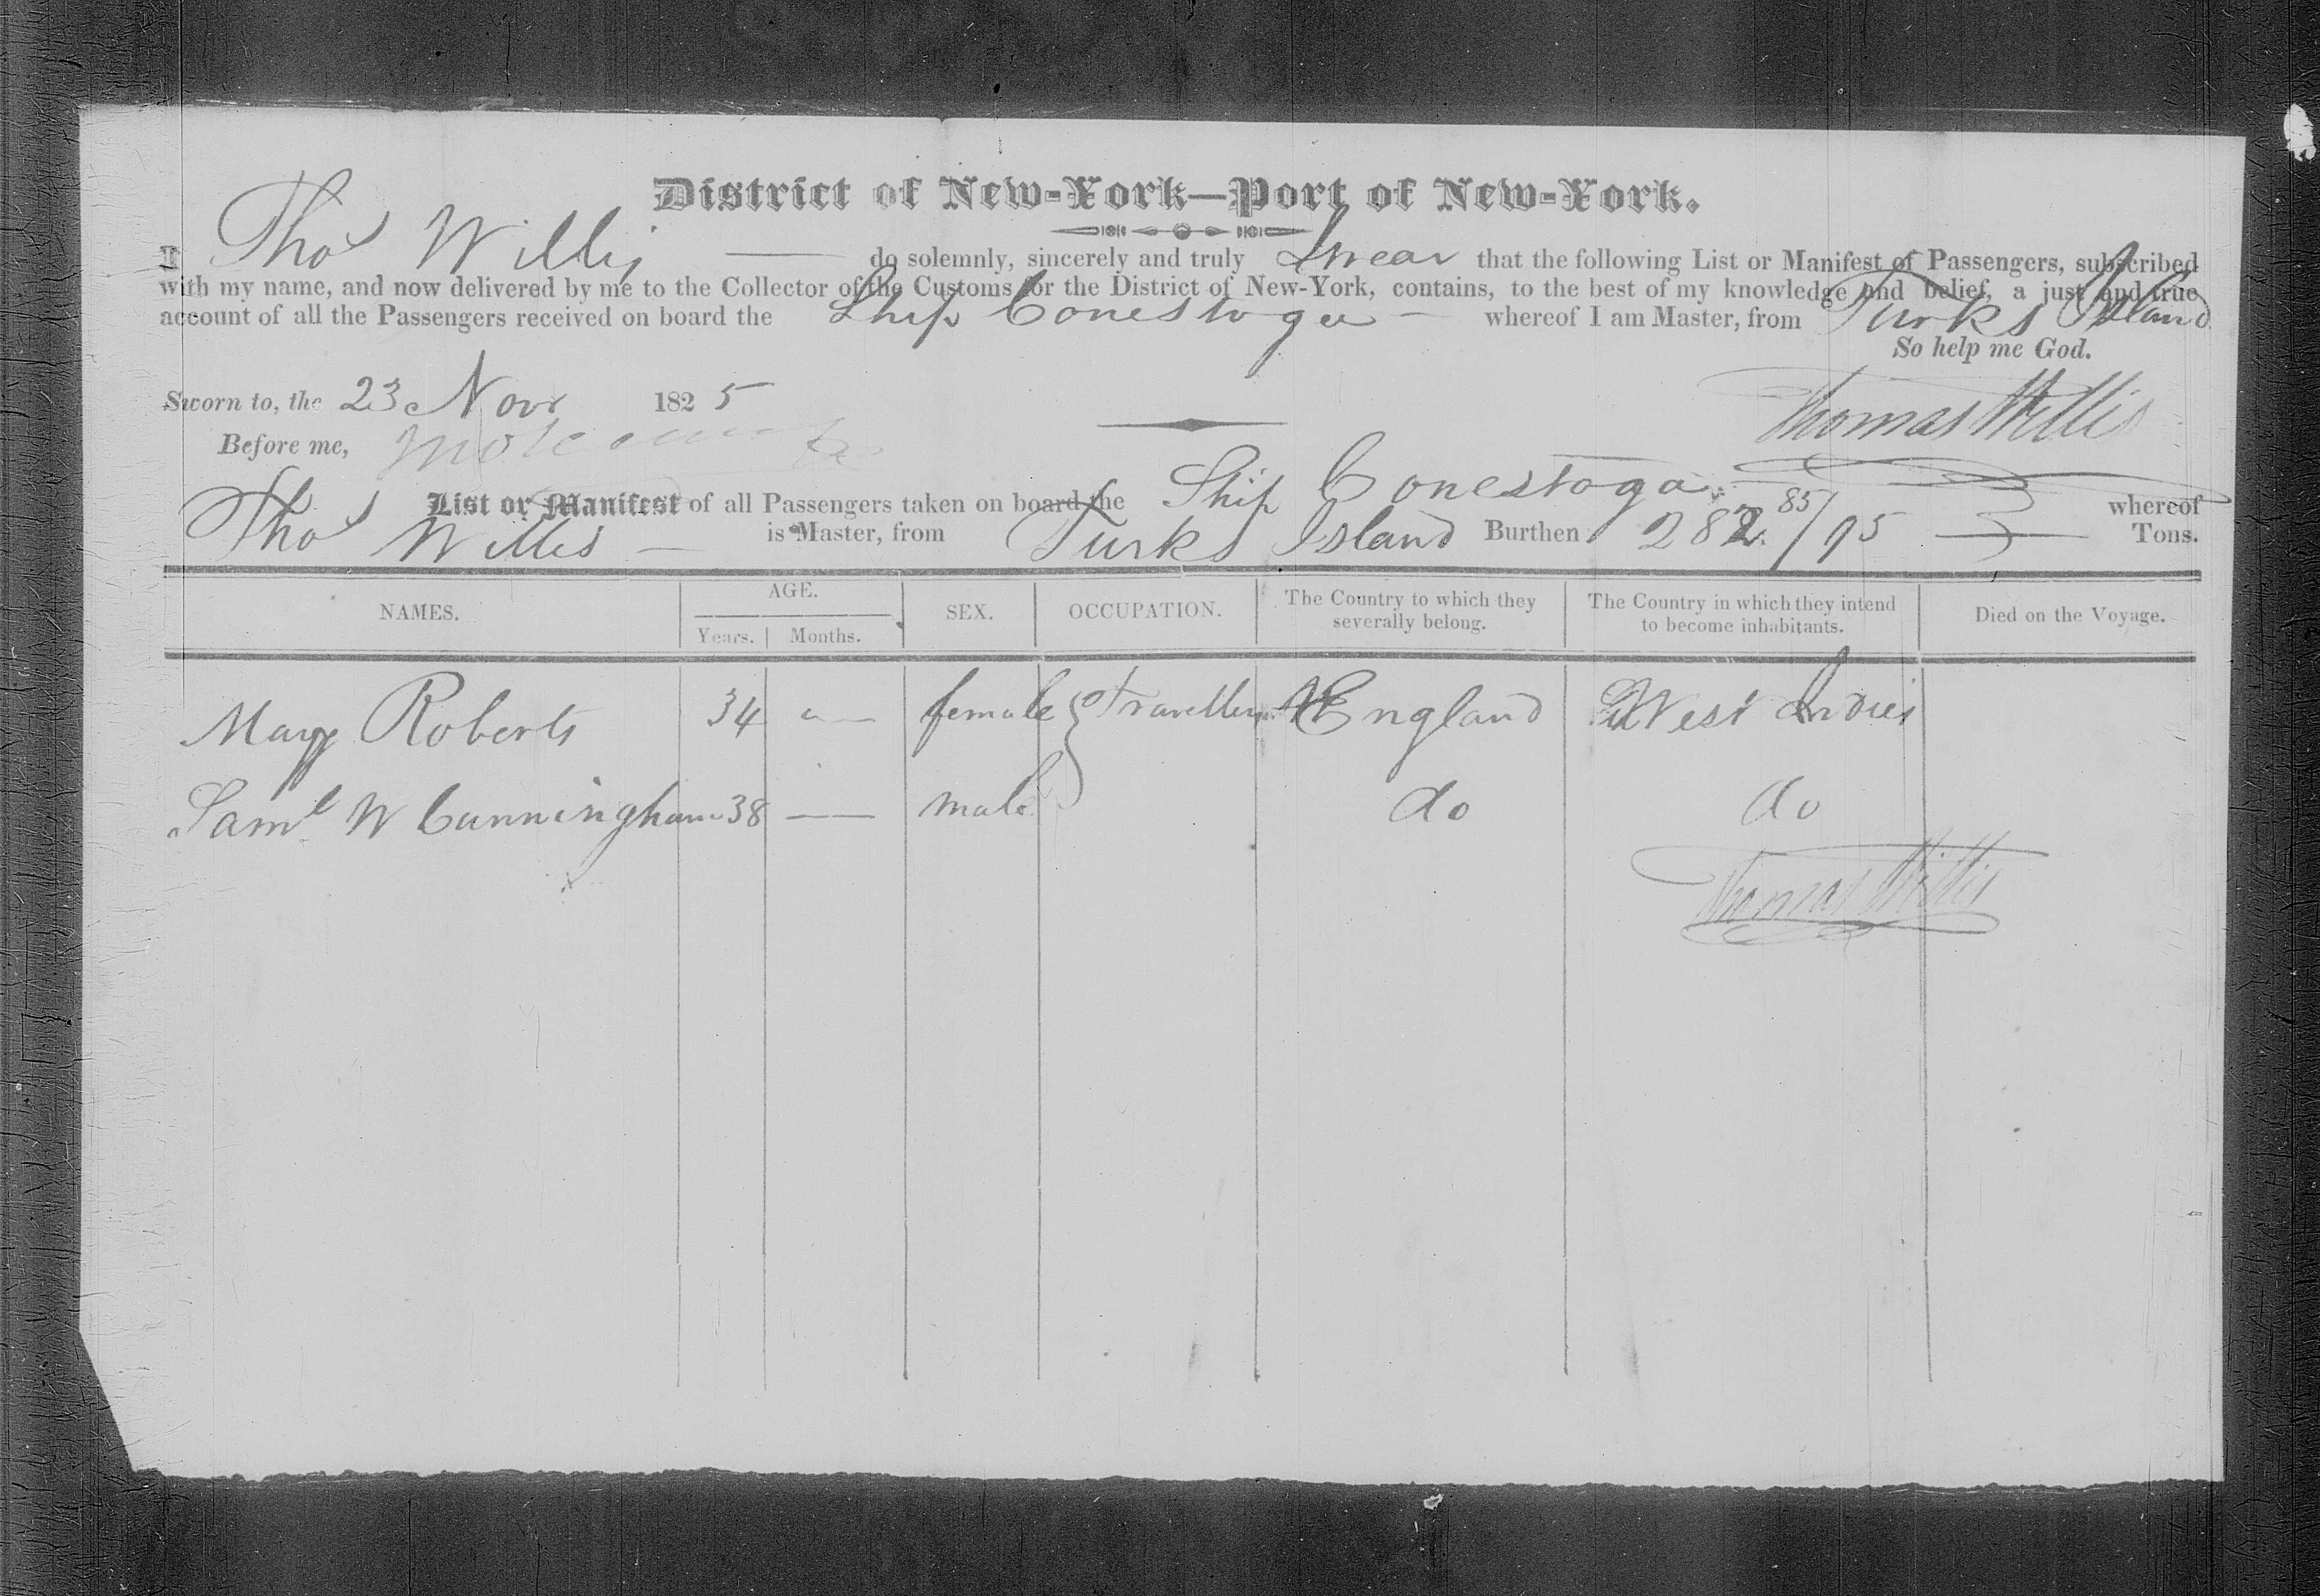 District of New-York—Port of New-York.
I Thos Willis — do solemnly, sincerely and truly Swear that the following List or Manifest of Passengers, subscribed
with my name, and now delivered by me to the Collector of the Customs for the District of New-York, contains, to the best of my knowledge and belief, a just and true
account of all the Passengers received on board the Ship Conestoga — whereof I am Master, from Turks Island
So help me God.
Sworn to, the 23 Novr 1825
Thomas Willis
Before me,
List or Manifest of all Passengers taken on board the Ship Conestoga whereof
Thos Willis — is Master, from Turks Island Burthen 282 85/95 Tons.
NAMES. AGE. Years. Months. SEX. OCCUPATION. The Country to which they severally belong. The Country in which they intend to become inhabitants. Died on the Voyage.
Mary Roberts 34 — female Travellers England West Indies
Saml W Cunningham 38 — male do do
Thomas Willis